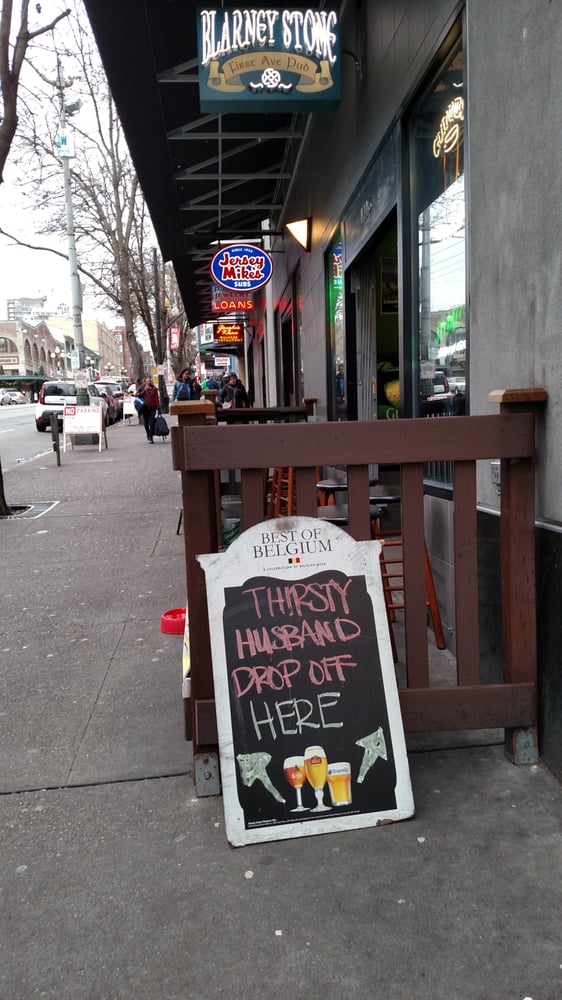 BLARNEY STONE
First Ave Pub
SINCE 1956
Jersey
Mike's
SUBS
LOANS
NO PARKING
BEST OF
BELGIUM
A CELEBRATION OF BELGIAN BEER
THIRSTY
HUSBAND
DROP OFF
HERE